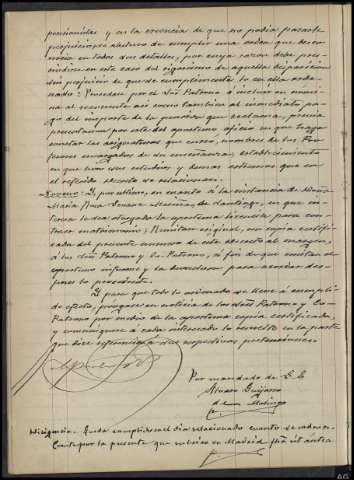 pensionistas y en la creencia de que no podía pararle
perjuicio
de cumplir una orden que descono
en todos sus detalles, por cuya razon debe pres
cindirse en este caso del rigorismo de aquella disposicion
sin perjuicio de que se cumplimente lo en ella orde
nado: Procedase por el Sor Patrono á incluir en nómi
na al recurrente así como tambien al inmediato pa
go del importe de la pension que reclama, previa
presentacion por este del oportuno oficio en que haga
constar las asignaturas que cursa, nombres de los Pro
fesores encargados de su enseñanza, establecimiento
en que cursa sus estudios y demas extremos que en
el referido decreto se relacionan.
Noveno: Y por ultimo, en cuanto á la instancia de
María Rosa de Santiago, en que in
teresa le sea otorgada la oportuna licencia para con
traer matrimonio: Remitase original, con copia certifi
cada del presente numero de este decreto al margen,
á los Sres Patrono y Co-Patrono, á fin de que emitan el
oportuno informe y la devuelvan para acordar des
pues lo procedente.
Y para que todo lo ordenado se lleve á cumplido
efecto, pongase en noticia de los Sres Patrono y Co-
Patrono por medio de la oportuna copia certificada,
y comuniquese á cada interesado lo resuelto en la parte
que dice referencia á sus respectivas pretensiones.
Por mandado de S. S.
Alvaro Guijarro
Diligencia: Queda cumplido en el día relacionado cuanto se ordena.
Conste por la presente que rubrico en Madrid fha ut antea.
AG